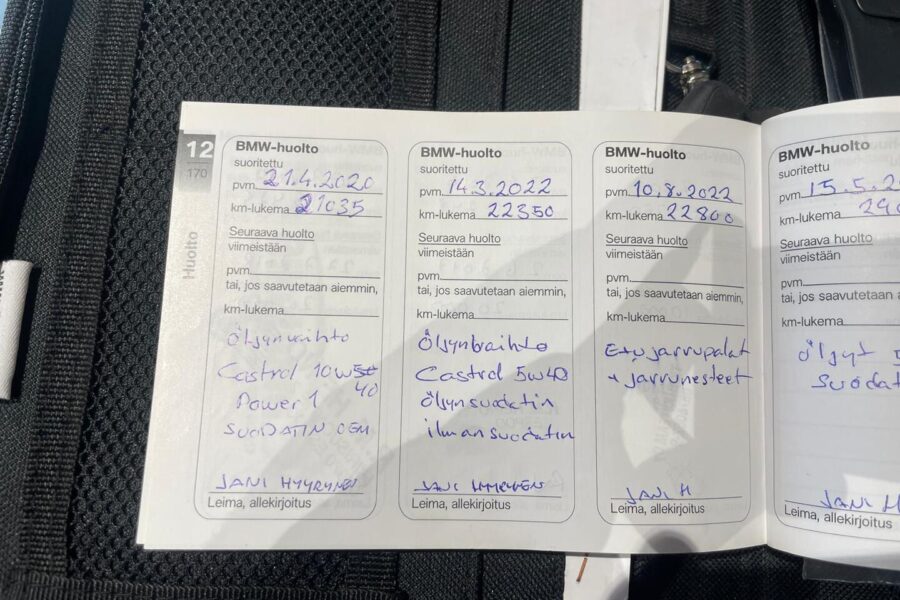 12
170
Huolto
BMW-huolto
suoritettu
pvm. 21.4.2020
km-lukema 21035
Seuraava huolto
viimeistään
pvm.
tai, jos saavutetaan aiemmin,
km-lukema
Öljynvaihto
Castrol 10w50
40
Power 1
SUODATIN OEM
JANI HYYRYNEN
Leima, allekirjoitus
BMW-huolto
suoritettu
pvm. 14.3.2022
km-lukema 22350
Seuraava huolto
viimeistään
pvm.
tai, jos saavutetaan aiemmin,
km-lukema
Öljynvaihto
Castrol 5w40
Öljynsuodatin
ilmansuodatin
JANI HYYRYNEN
Leima, allekirjoitus
BMW-huolto
suoritettu
pvm. 10.8.2022
km-lukema 22800
Seuraava huolto
viimeistään
pvm.
tai, jos saavutetaan aiemmin,
km-lukema
Etujarrupalat
+ jarrunesteet
JANI H
Leima, allekirjoitus
BMW-huolto
suoritettu
pvm. 15.5.2
km-lukema 290
Seuraava huolto
viimeistään
pvm.
tai, jos saavutetaan a
km-lukema
Öljyt
suodat
JANI H
Leima, allekirjoitus